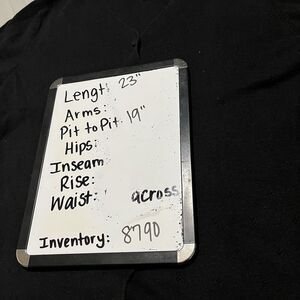 Lengt: 23"
Arms:
Pit to Pit 19"
Hips:
Inseam
Rise:
Waist: across
Inventory: 8790